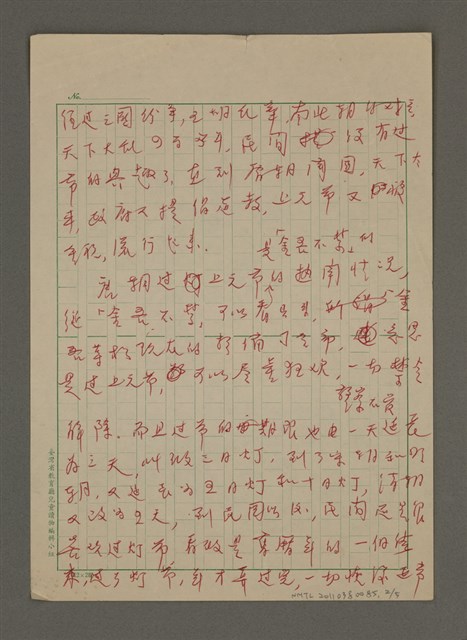 No.
值是三國紛爭,五胡亂華,南北朝的對峙
天下大亂四百多年,民間沒有過
節的興趣了,直到唐朝開國,天下太
平,政府又提倡道教,上元節又
重視,流行起來。
是「金吾不禁」的
唐朝過上元節的熱鬧情況,
從「金吾不禁」可以看見,所謂金
吾等於現在的警備司令部,意思
是過上元節,可以盡量狂歡,一切禁令
解除。而且過節的期限也由一天延長
為三天,叫做三日燈,到了宋朝和明
朝,又延長為五日燈和十日燈,清朝
又改為五天,到民國以後,民間還是很
喜歡過燈節,
來,過了燈節,年才算過完,一切恢復正常
台灣省教育廳兒童讀物編輯小組
NMTL 20110380085, 2/5